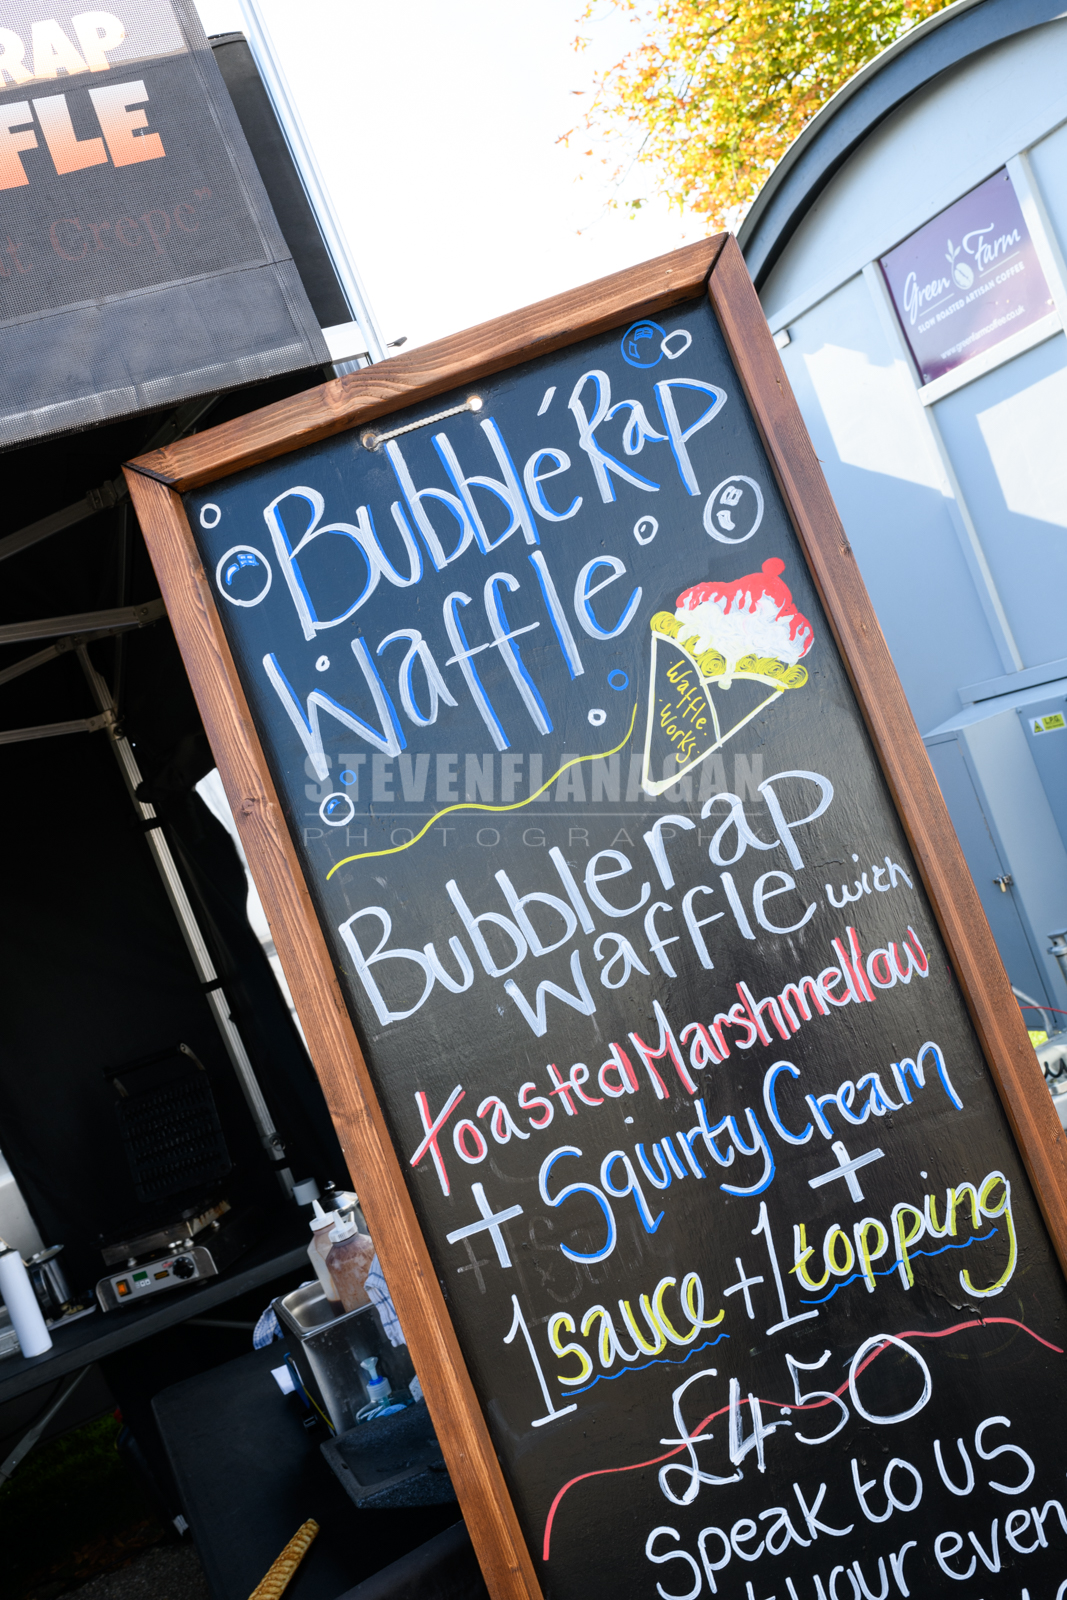 RAP
FFLE
Crepe"
Green Farm
SLOW ROASTED ARTISAN COFFEE
www.greenfarmcoffee.co.uk
L.P.G
Bubble'Rap
Waffle
Waffle.
Works.
STEVENFLANAGAN
PHOTOGRAPHY
Bubblerap
waffle with
toasted Marshmellow
+ Squirty Cream
+
1 sauce + 1 topping
£4.50
Speak to us
your even